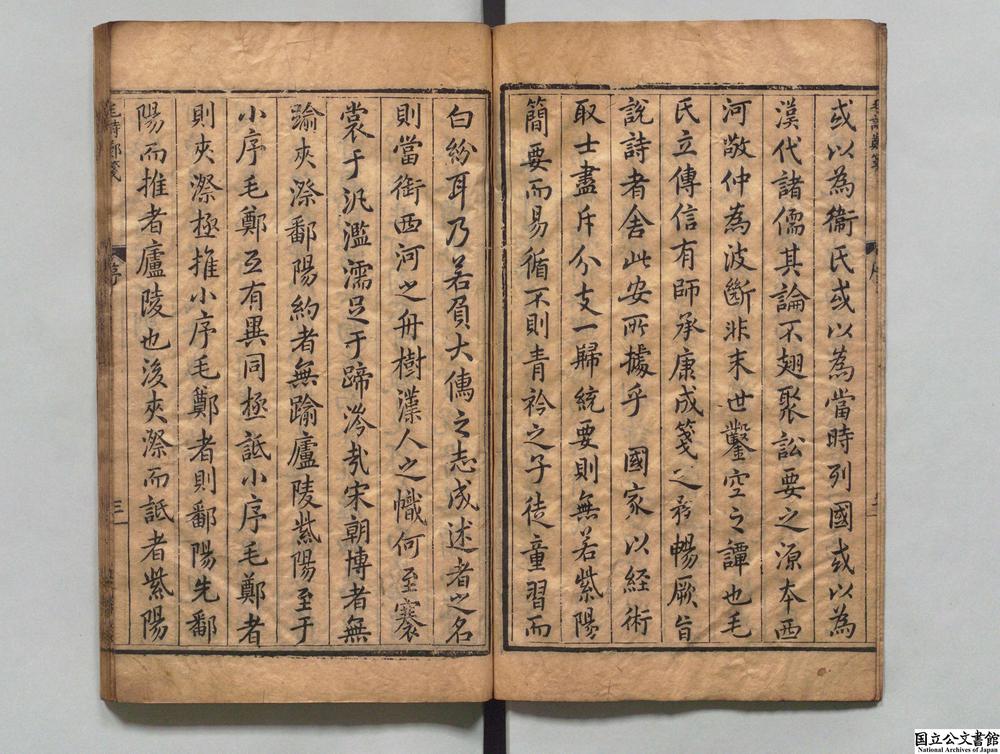 或以為衞氏或以為當時列國或以為
漢代諸儒其論不翅聚訟要之源本西
河敬仲為波斷非末世鑿空之譚也毛
氏立傳信有師承康成箋之務暢厥旨
說詩者舍此安所據乎　國家以経術
取士盡斥分支一歸統要則無若紫陽
簡要而易循不則青衿之子徒童習而
白紛耳乃若負大傳之志成述者之名
則當銜西河之舟樹漢人之幟何至褰
裳于汎濫濡足于蹄涔㢤宋朝博者無
踰夾漈鄱陽約者無踰廬陵紫陽至于
小序毛鄭互有異同極詆小序毛鄭者
則夾漈極推小序毛鄭者則鄱陽先鄱
陽而推者廬陵也後夾漈而詆者紫陽
毛詩鄭箋
序
三
国立公文書館
National Archives of Japan